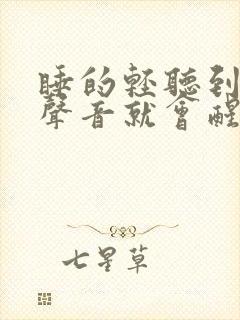 睡的輕聽到
聲音就會醒
七星草